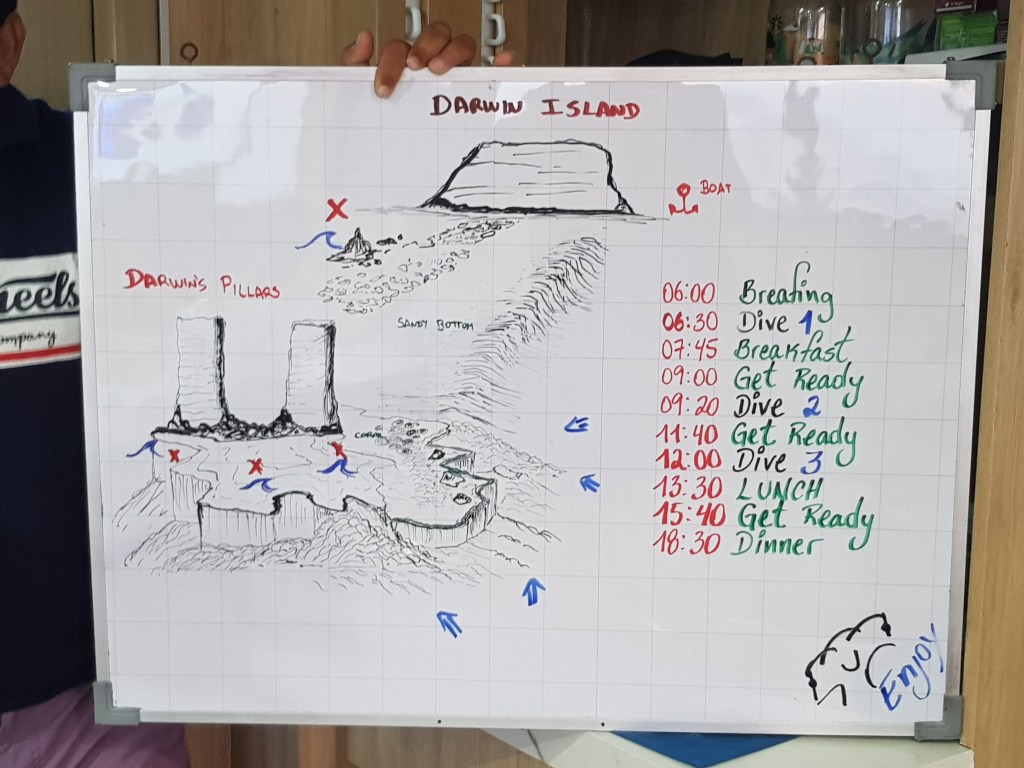 DARWIN ISLAND
BOAT
DARWIN'S PILLARS
SANDY BOTTOM
CORAL
06:00 Breafing
06:30 Dive 1
07:45 Breakfast
09:00 Get Ready
09:20 Dive 2
11:40 Get Ready
12:00 Dive 3
13:30 LUNCH
15:40 Get Ready
18:30 Dinner
Enjoy
ompany